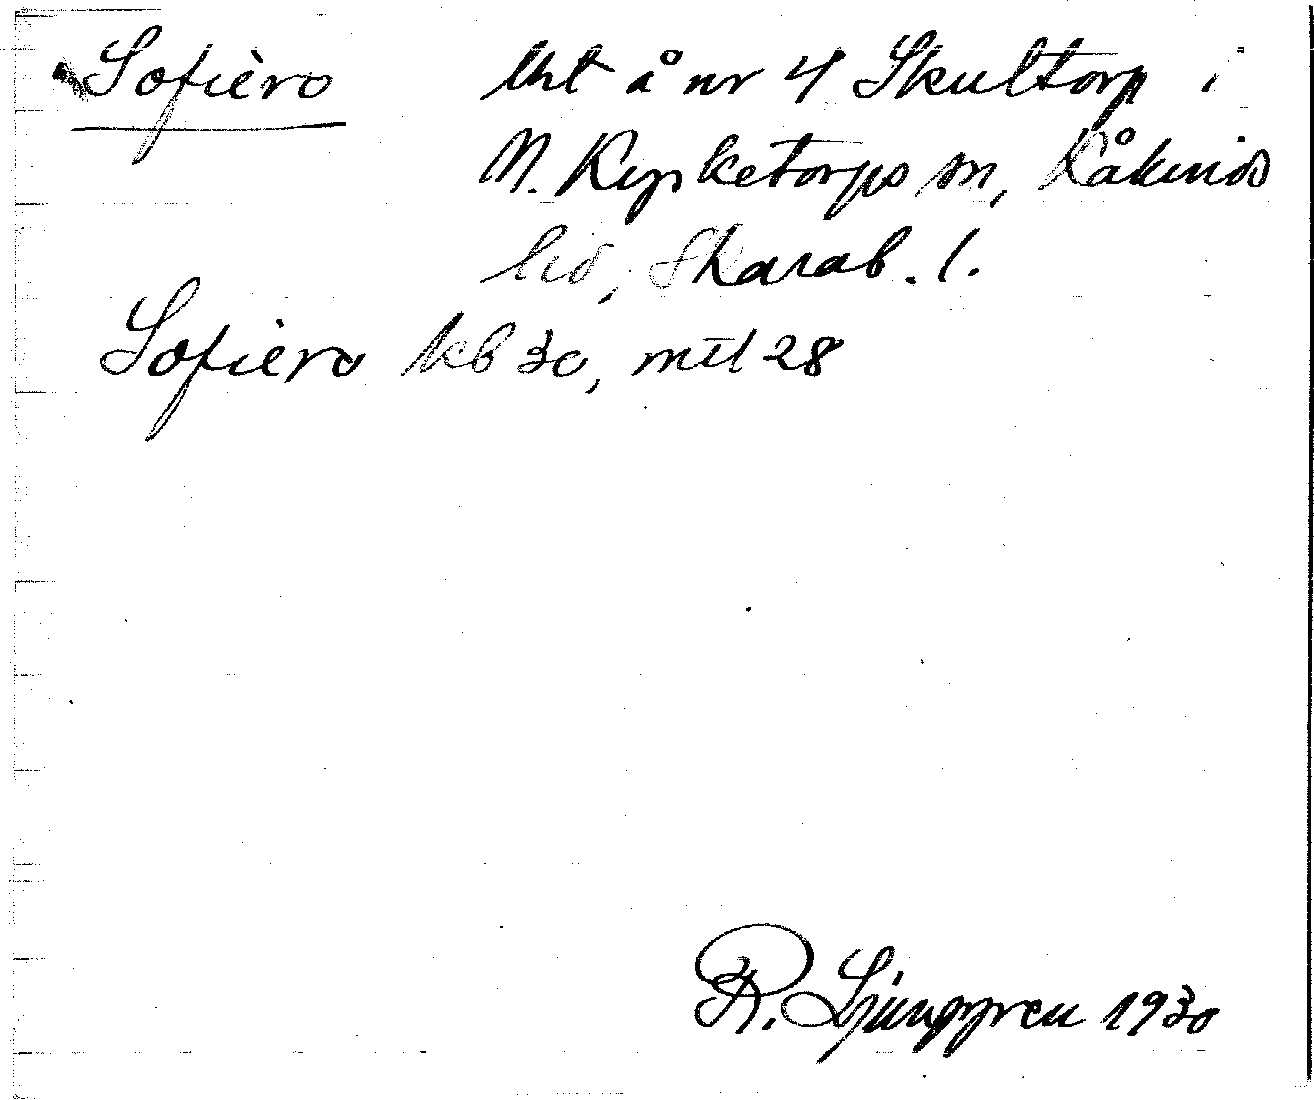 Sofièro lht å nr 4 Skultorp i
N. Kyrketorps sn, Kåkinds
hd, Skarab. l.
Sofièro kb 30, mtl 28
R. Ljunggren 1930